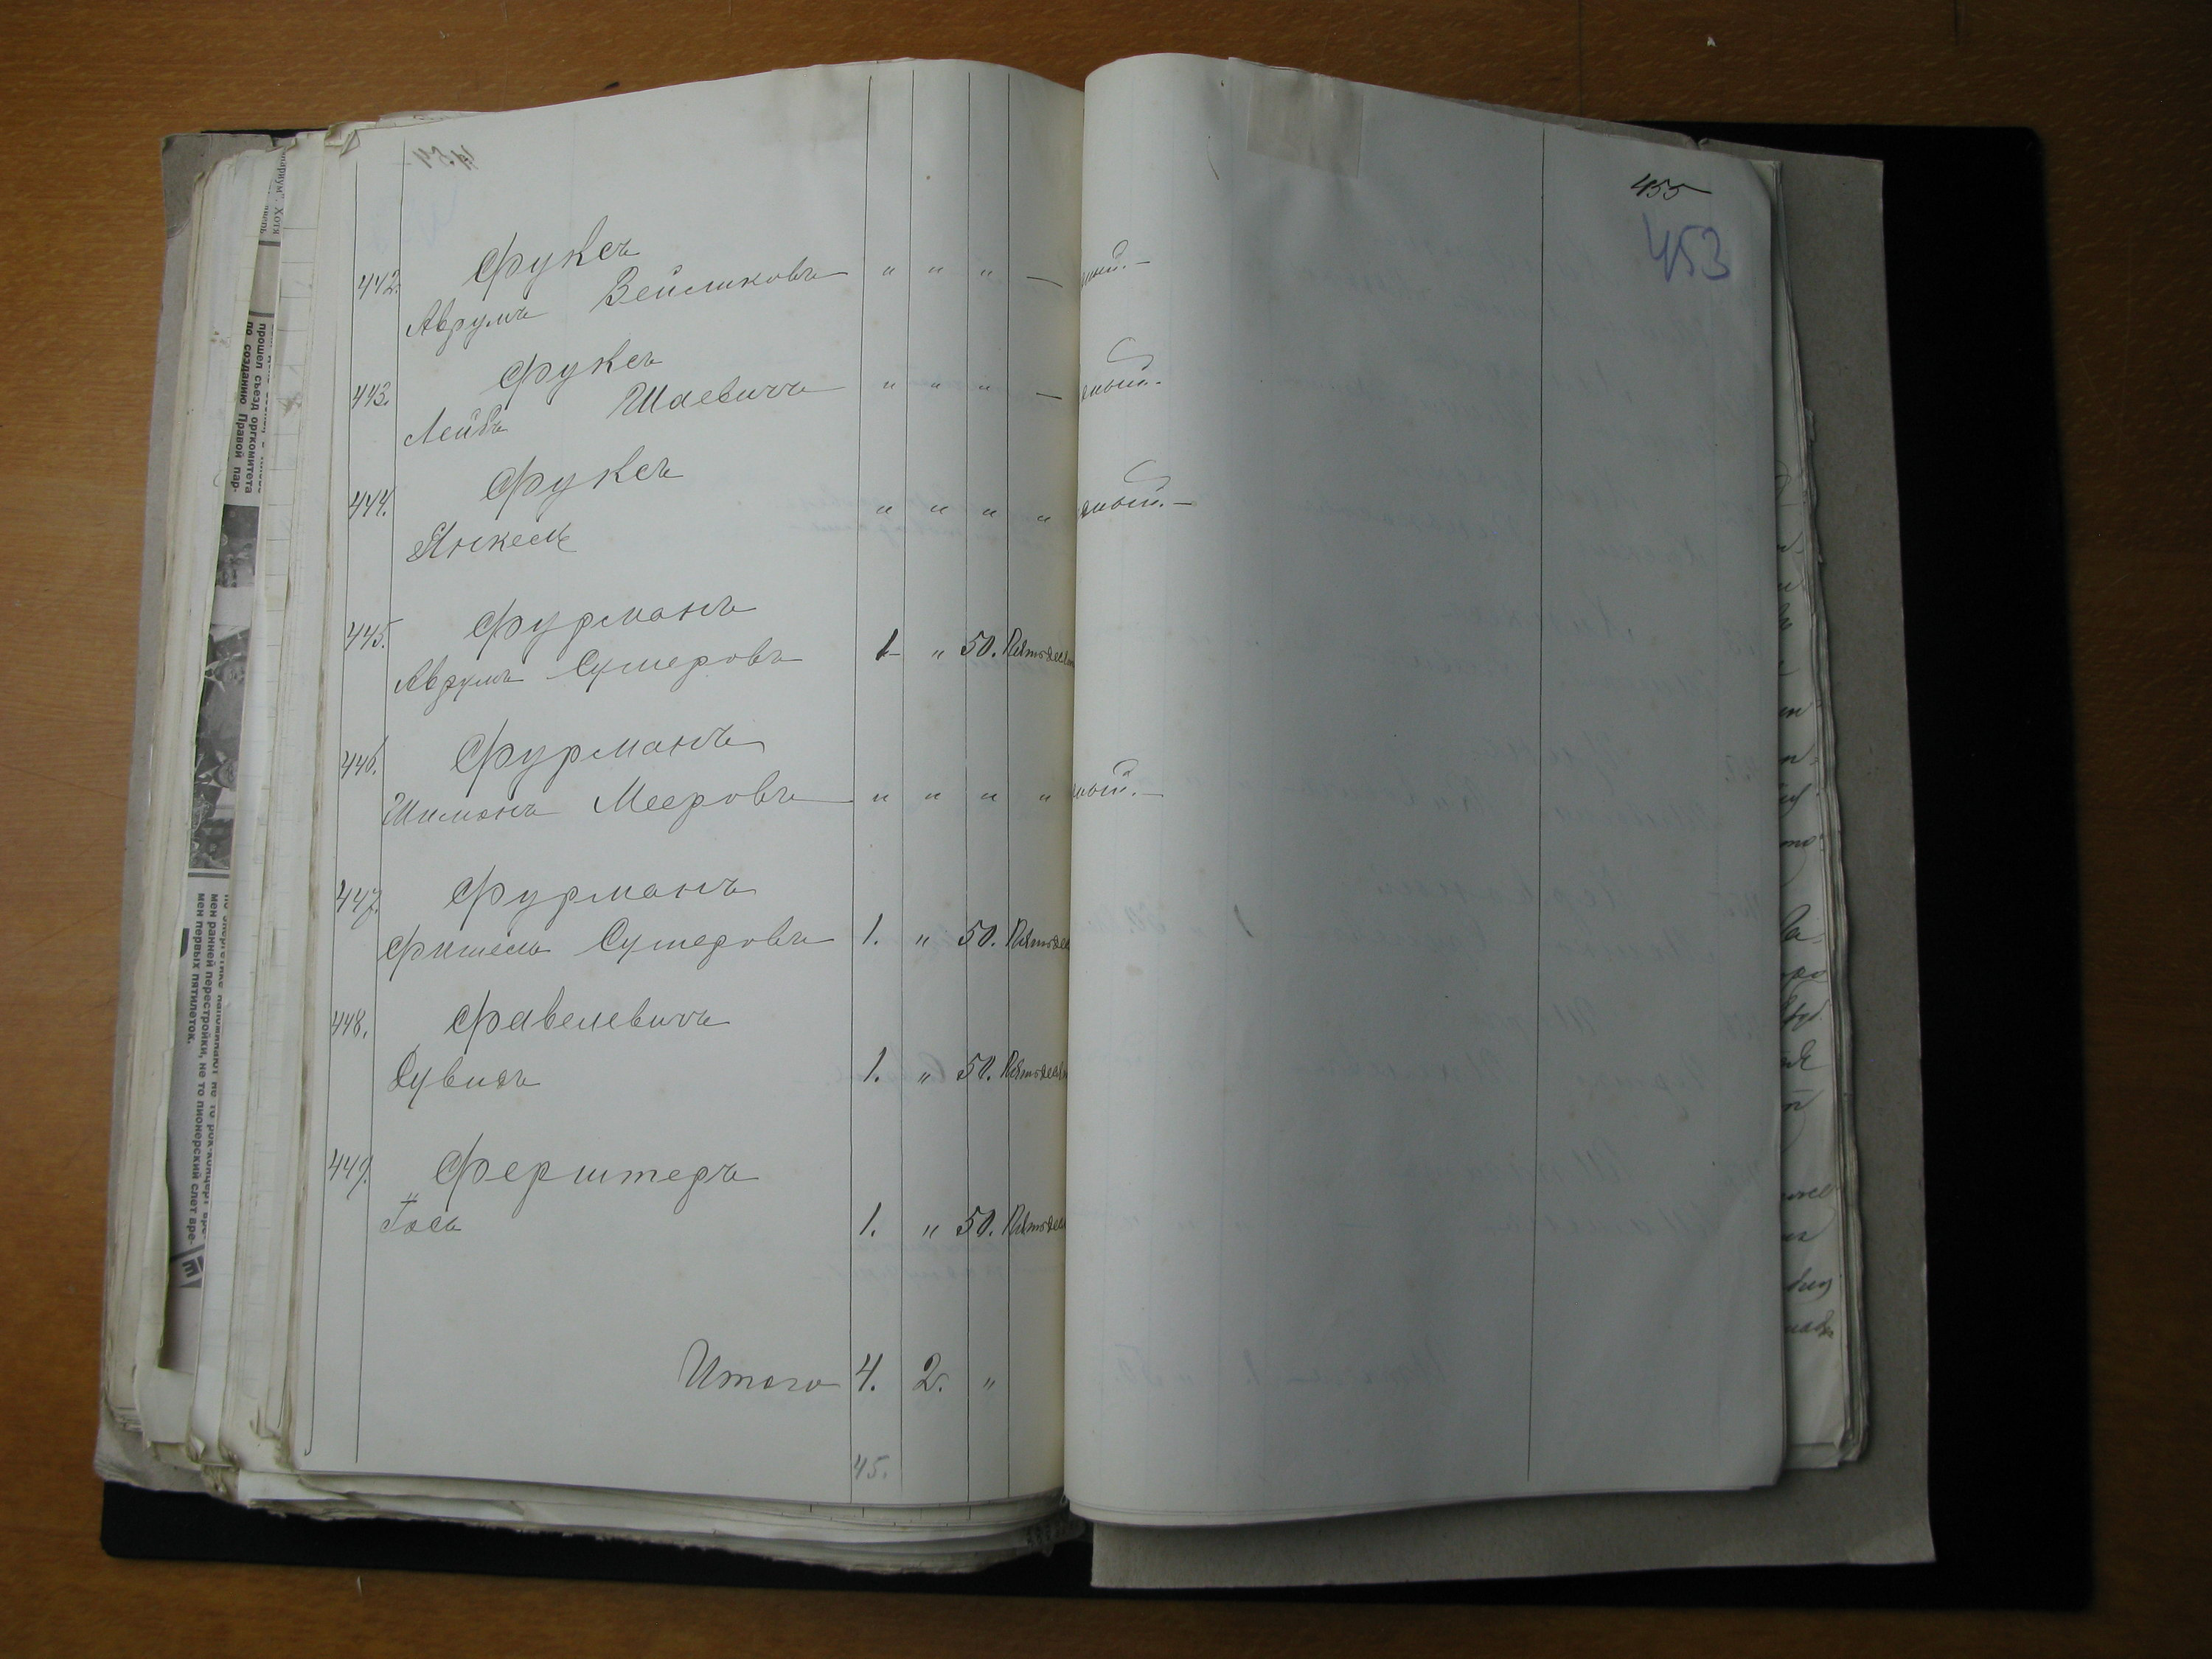 442. Фуксъ
Аврумъ Зейликовъ " " " —
443. Фуксъ
Лейбъ Шаевичъ " " " —
444. Фуксъ
Янкель " " " "
445. Фурманъ
Аврумъ Сумеровъ 1 " 50. Пятьдес
446. Фурманъ
Шимонъ Мееровъ " " " "
447. Фурманъ
Фишель Сумеровъ 1. " 50. Пятьдес
448. Фавелевичъ
Дувидъ 1. " 50. Пятьдес
449. Ферштеръ
1. " 50. Пятьдес
Итого 4. 2. "
45.
455
453
прошел съезд оргкомитета
по созданию Правой пар-
мен ранней перестройки, не то пионерский слет вре-
мен первых пятилеток.